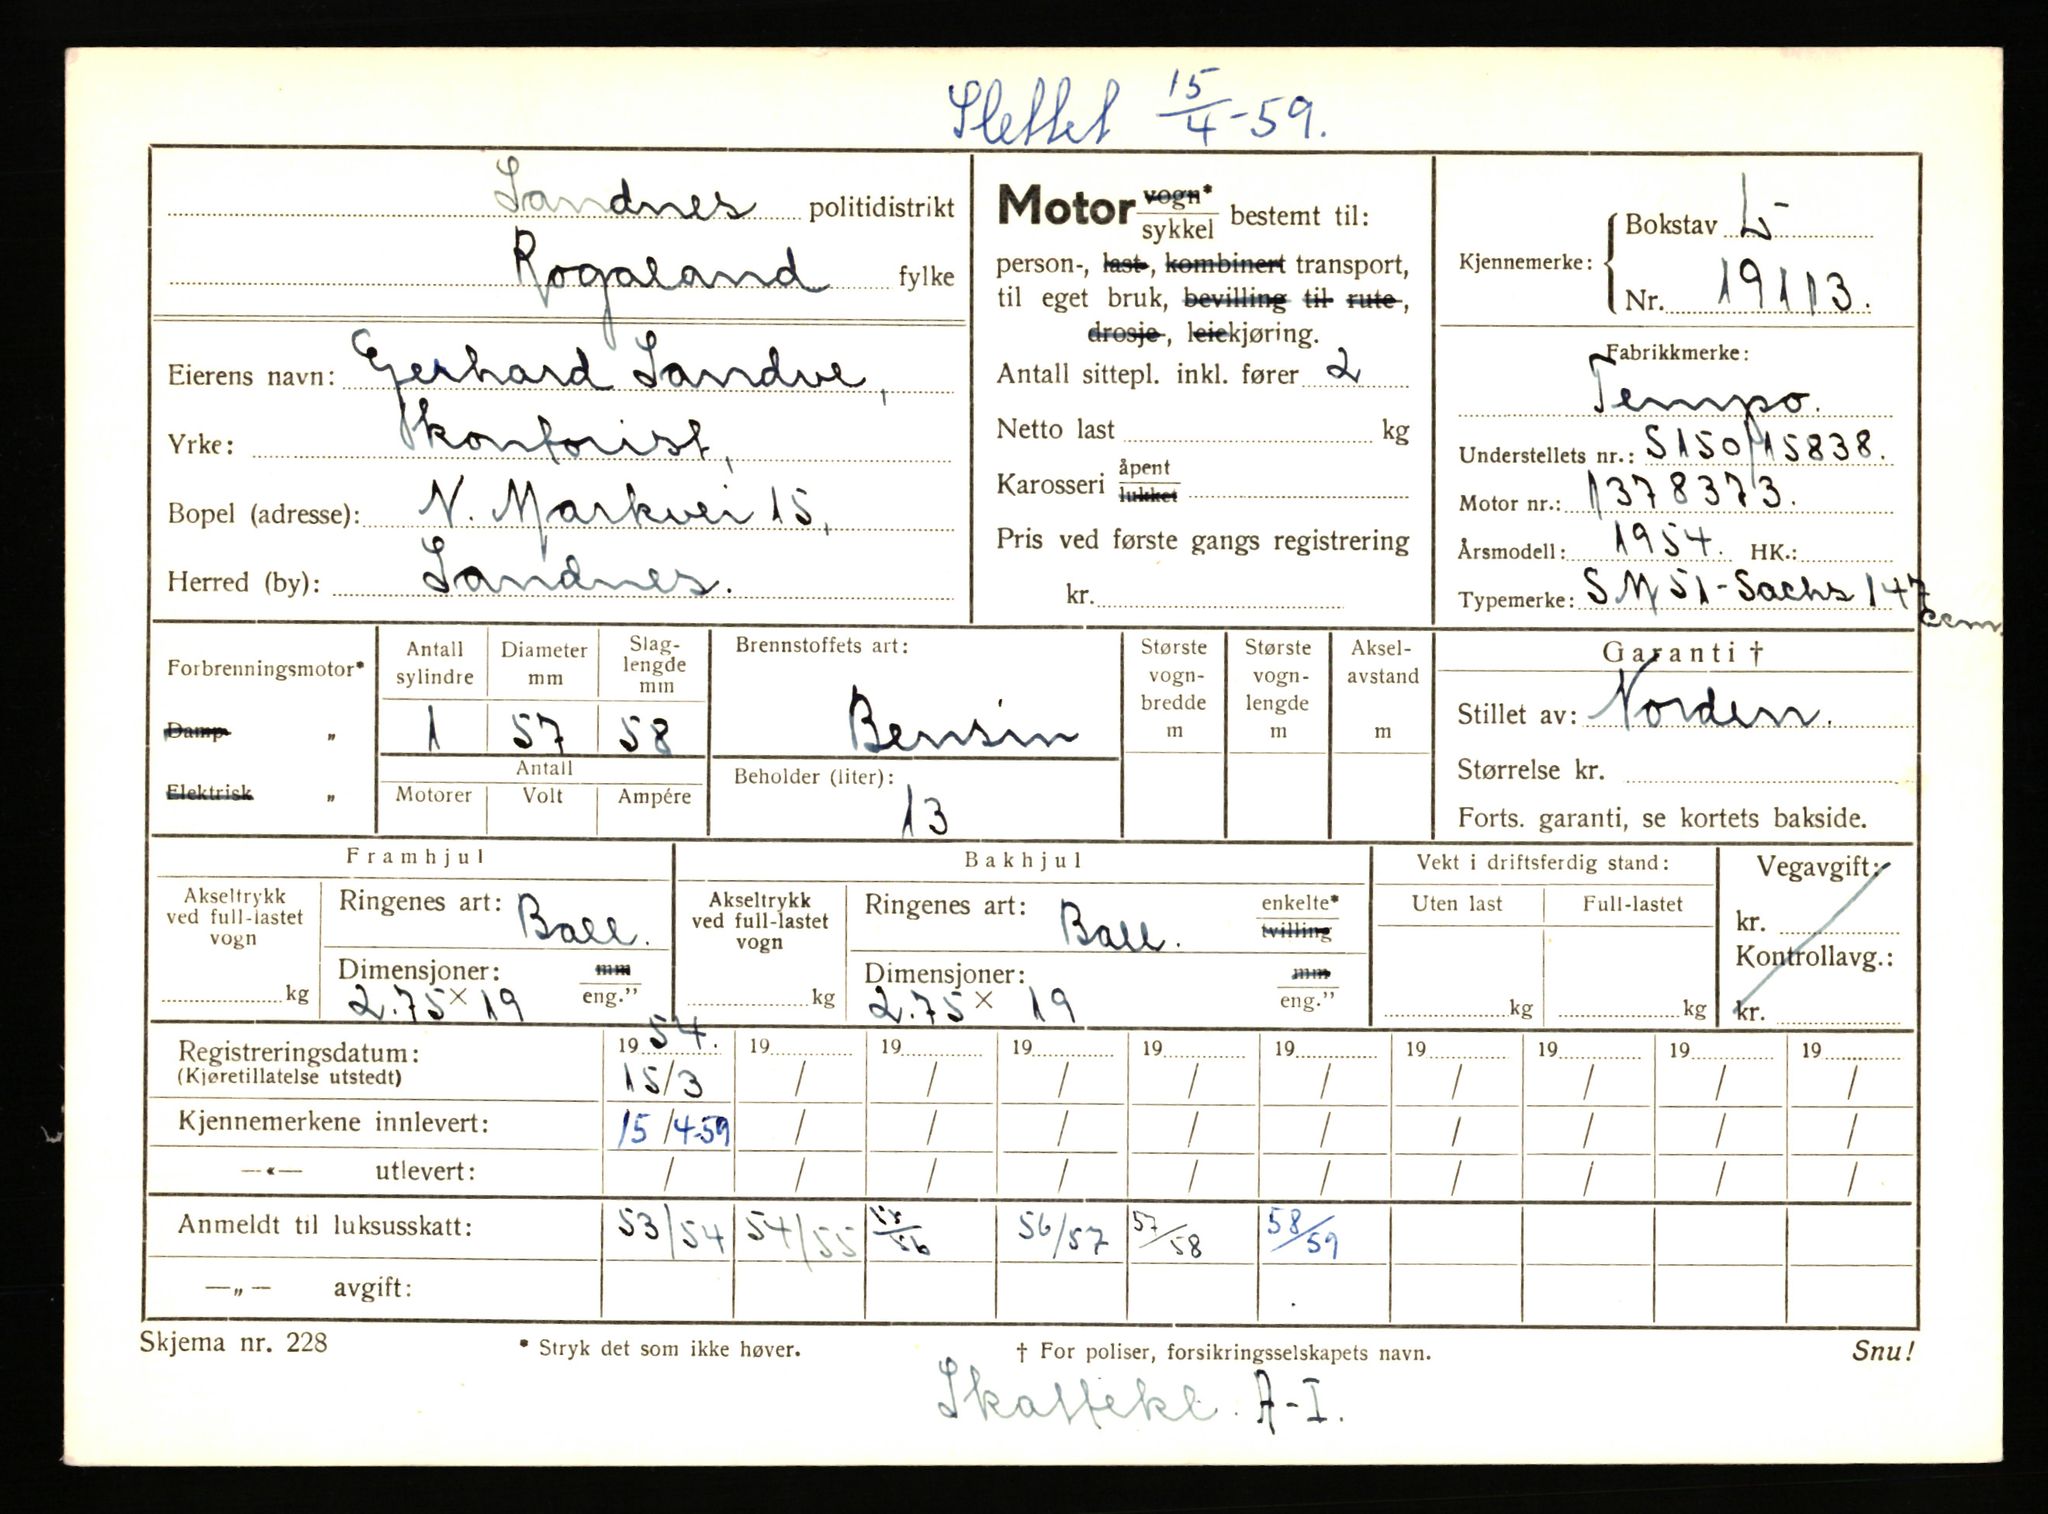 Slettet 15/4-59.
Sandnes politidistrikt
Rogaland fylke
Eierens navn: Gerhard Sandve,
Yrke: kontorist,
Bopel (adresse): N. Markvei 15,
Herred (by): Sandnes.
Motor vogn* / sykkel bestemt til:
person-, last-, kombinert transport,
til eget bruk, bevilling til rute-,
drosje-, leiekjøring.
Antall sittepl. inkl. fører 2
Netto last kg
Karosseri åpent / lukket
Pris ved første gangs registrering
kr.
Kjennemerke: Bokstav L
Nr. 19113.
Fabrikkmerke:
Tempo.
Understellets nr.: S150/15838.
Motor nr.: 1378373.
Årsmodell: 1954. HK.:
Typemerke: SM 51-Sachs 147 ccm.
Forbrenningsmotor*
Damp „
Elektrisk „
Antall sylindre 1
Diameter mm 57
Slag-lengde mm 58
Antall
Motorer Volt Ampére
Brennstoffets art:
Bensin
Beholder (liter):
13
Største vogn-bredde m
Største vogn-lengde m
Aksel-avstand m
Garanti †
Stillet av: Norden.
Størrelse kr.
Forts. garanti, se kortets bakside.
Framhjul
Akseltrykk ved full-lastet vogn
kg
Ringenes art: Ball.
Dimensjoner: mm / eng.”
2.75 x 19
Bakhjul
Akseltrykk ved full-lastet vogn
kg
Ringenes art: Ball. enkelte* / tvilling
Dimensjoner: mm / eng.”
2.75 x 19
Vekt i driftsferdig stand:
Uten last Full-lastet
kg kg
Vegavgift:
kr.
Kontrollavg.:
kr.
Registreringsdatum: 1954. 19 19 19 19 19 19 19 19 19
(Kjøretillatelse utstedt) 15/3 / / / / / / / / /
Kjennemerkene innlevert: 15/4-59 / / / / / / / / /
—«— utlevert: / / / / / / / / / /
Anmeldt til luksusskatt: 53/54 54/55 55/56 56/57 57/58 58/59
—„— avgift:
Skjema nr. 228 * Stryk det som ikke høver. † For poliser, forsikringsselskapets navn. Snu!
Skattekl. A-I.